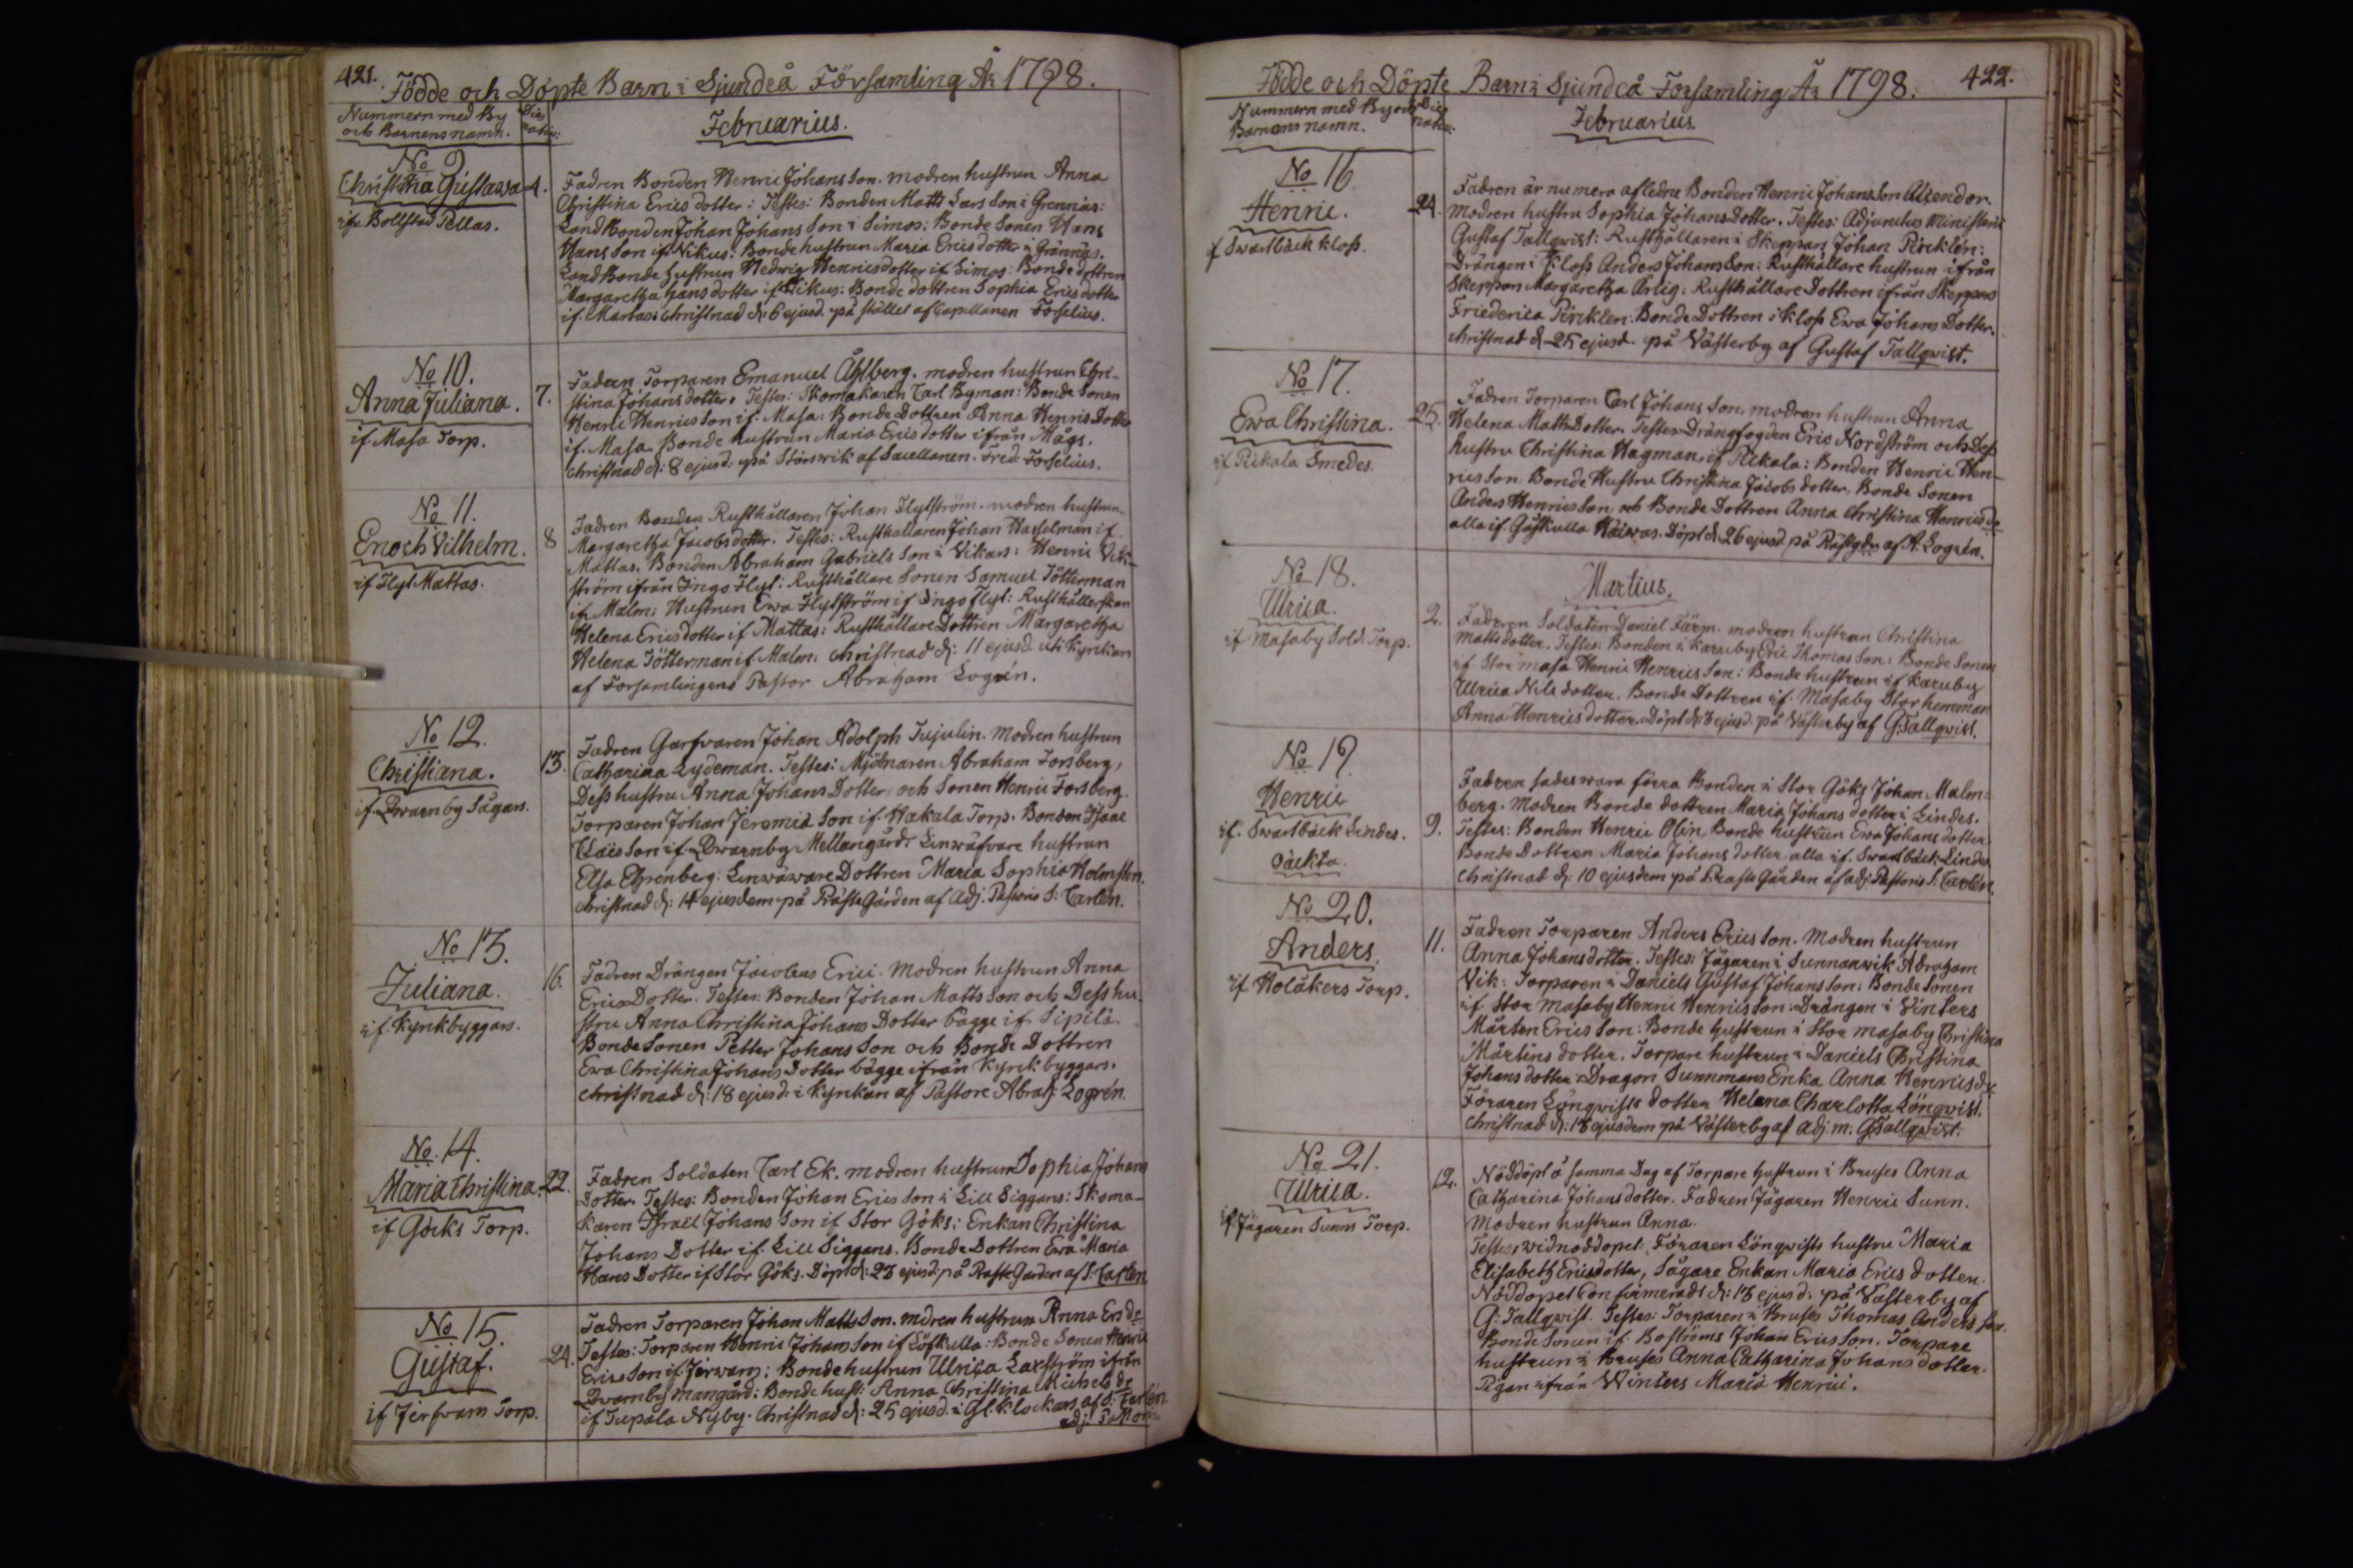 421.
Födde och Döpte Barn i Sjundeå Församling År 1798.
Nummern med By och Barnens namn.
Dies natus:
Februarius.
No 9
Christina Gustava
if Bollstad Pellas.
4.
Fadren Bonden Henric Johans Son. modren hustrun Anna
Christina Erics dotter: Testes: Bonden Matts Lars Son i Grennäs:
Land Bonden Johan Johans Son i Simos: Bonde Sonen Hans
Hans Son if. Nikus: Bonde hustrun Maria Erics dotter i Grännäs.
Land Bonde hustrun Hedwig Henricsdotter if Simos: Bonde dottren
Margaretha Hans dotter if Nikus: Bonde dottren Sophia Erics dotter
if. Martas: Christnad d: 6 ejusd. på stället af Capellanen Forselius.
No 10.
Anna Juliana.
if. Masa Torp.
7.
Fadren Torparen Emanuel Åhlberg. modren hustrun Chri-
stina Johans dotter. Testes: Skomakaren Carl Byman: Bonde Sonen
Henric Henrics Son if. Masa: Bonde Dottren Anna Henrics Dotter
if. Masa. Bonde hustrun Maria Erics dotter ifrån Mågs.
Christnad d: 8 ejusd. på Störswik af Sacellanen. Fred. Forselius.
No 11.
Enoch Vilhelm.
if Flyt Mattas.
8
Fadren Bonden Rusthållaren Johan Flytström. modren hustrun
Margaretha Jacobs dotter. Testes: Rusthållaren Johan Hasselman if
Mattas. Bonden Abraham Gabriels Son i Vikars: Henric Vik-
ström ifrån Ingo Flyt: Rusthållare Sonen Samuel Tötterman
if. Malm: Hustrun Ewa Flytström if Ingo Flyt: Rusthållerskan
Helena Ericsdotter if Mattas: Rusthållare Dottren Margaretha
Helena Tötterman if. Malm: Christnad d: 11 ejusd. uti Kyrckan
af Forsamlingens Pastor Abraham Logrén.
No 12.
Christiana.
if. Qwarnby Sågars.
13.
Fadren Garfvaren Johan Adolph Jujulin. Modren hustrun
Catharina Lydeman. Testes: Mjölnaren Abraham Forsberg,
Dess hustru Anna Johans Dotter, och Sonen Henric Forsberg.
Torparen Johan Jeremiæ Son if. Hakala Torp. Bonden Isaac
Claës Son if. Qwarnby Mellangård. Linwäfvare hustrun
Elsa Ehrenberg: Linwäware Dottren Maria Sophia Holmsten.
Christnad d: 14 ejusdem på Präste Gården af Adj. Pastoris S: Carlén.
No 13.
Juliana.
if. Kyrkbyggars.
16.
Fadren Drängen Jacobus Erici. Modren hustrun Anna
Erics Dotter. Testes: Bonden Johan Matts Son och Dess hu-
stru Anna Christina Johans Dotter bägge if. Sipilä.
Bonde Sonen Petter Johans Son och Bonde Dottren
Ewa Christina Johans dotter bägge ifrån Kyrckbyggars.
Christnad d: 18 ejusd. i Kyrckan af Pastore Abrah: Logrén.
No. 14.
Maria Christina.
if Göcks Torp.
22.
Fadren Soldaten Carl Ek. modren hustrun Sophia Johans
Dotter. Testes: Bonden Johan Erics Son i Lill Siggans: Skoma-
karen Israel Johans Son if Stor Göks: Enkan Christina
Johans Dotter if. Lill Siggans. Bonde Dottren Ewa Maria
Hans Dotter if Stor Göks. Döpt d: 23 ejusd. på Präste Garden af S. Carlén
No 15.
Gustaf.
if Jerfvans Torp.
24.
Fadren Torparen Johan Matts Son. modren hustrun Anna Ersdr
Testes: Torparen Henric Johans Son if Löfkulla: Bonde Sonen Henric
Erics Son if Jerwans: Bonde hustrun Ulrica Laxström ifrån
Qwarnby Mangård: Bonde hust: Anna Christina Michelsdr
if Tupala Nyby. Christnad d: 25 ejusd. i Gl. Klockars af S: Carlén.
adj: P.
422.
Födde och Döpte Barn i Sjundeå Forsamling År 1798.
Nummern med By och Barnens namn.
Dies natus.
Februarius.
No 16
Henric.
if Swartbäck Kloss.
24.
Fadren är numera afledne Bonden Henric Johans Son
Modren hustru Sophia Johans Dotter. Testes: Adjunctus Ministerii
Gustaf Tallqwist: Rusthållaren i Skeppars Johan Pörcklén:
Drängen i Kloss Anders Johans Son: Rusthållare hustrun ifrån
Skeppars Margaretha Arlig: Rusthållare Dottren ifrån Skeppars
Friederica Pörcklen: Bonde Dottren i Kloss Ewa Johans Dotter.
Christnad d. 25 ejusd. på Västerby af Gustaf Tallqwist.
No 17.
Ewa Christina.
if Pikala Smedes.
25.
Fadren Torparen Carl Johans Son, modren hustrun Anna
Helena Matts Dotter. Testes Drängfogden Eric Nordström och Dess
hustru Christina Hagman, if Pikala: Bonden Henric Hen-
rics Son, Bonde Hustru Christina Jacobs dotter, Bonde Sonen
Anders Henrics Son och Bonde Dottren Anna Christina Henricsdr
alla if. Göstkulla . Döpt d: 26 ejusd på Prästgdn af A. Logrén.
Martius.
No 18.
Ulrica.
if Masaby Sold. Torp.
2.
Fadren Soldaten Daniel Färm. modren hustrun Christina
Matts dotter. Testes: Bonden i Karuby Eric Thomas Son: Bonde Sonen
if Stor masa Henric Henrics Son: Bonde hustrun if Karuby
Ulrica Nils dotter. Bonde Dottren if. Masaby Storhemman
Anna Henrics dotter. Döpt d: 3 ejusd. på Västerby af G. Tallqwist.
No 19.
Henric
if. Swartbäck Lindes.
oäckta.
9.
Fadren sades wara förra Bonden i Stor Göks Johan Malm-
berg. Modren Bonde dottren Maria Johans dotter i Lindes.
Testes: Bonden Henric Olin, Bonde hustrun Ewa Johans dotter
Bonde Dottren Maria Johans dotter alla if. Swartbäck Lindes
Christnad d: 10 ejusdem på Präste Gården af adj. Pastoris S. Carlén.
No 20.
Anders.
if Holåkers Torp.
11.
Fadren Torparen Anders Erics Son. Modren hustrun
Anna Johansdotter. Testes: Jägaren i Sunnanwik Abraham
Vik: Torparen i Daniels Gustaf Johans Son: Bonde Sonen
if Stor Masaby Henric Henrics Son: Drängen i Vinters
Mårten Erics Son: Bonde hustrun i Stor masaby Christina
Mårtens dotter. Torpare hustrun i Daniels Christina
Johans dotter: Dragon Sunnmans Enka Anna Henricsdr
Föraren Löngwists dotter Helena Charlotta Löngwist.
Christnad d: 13 ejusdem på Västerby af adj. m. G. Tallqwist.
No 21.
Ulrica.
if. Jägaren Sunns Torp.
12.
Nöddöpt å samma Dag af Torpare hustrun i Bruses Anna
Catharina Johans dotter. Fadren Jägaren Henric Sunn.
Modren hustrun Anna.
Testes, wid nöddopet: Föraren Löngwists hustru Maria
Elisabeth Ericsdotter, Sågare Enkan Maria Erics dotter.
Nöddopet Confirmeradt d: 13 ejusd. på Västerby af
G: Tallqwist. Testes: Torparen i Bruses Thomas Anders Son.
Bonde Sonen if. Boströms Johan Erics Son. Torpare
hustrun i Bruses Anna Catharina Johans dotter.
Pigan ifrån Winters Maria Henrici.